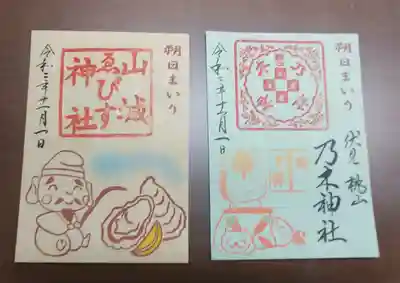 朔日まいり
山城
ゑびす
神社
令和三年十一月一日
朔日まいり
伏見 桃山
乃木神社
令和三年十一月一日